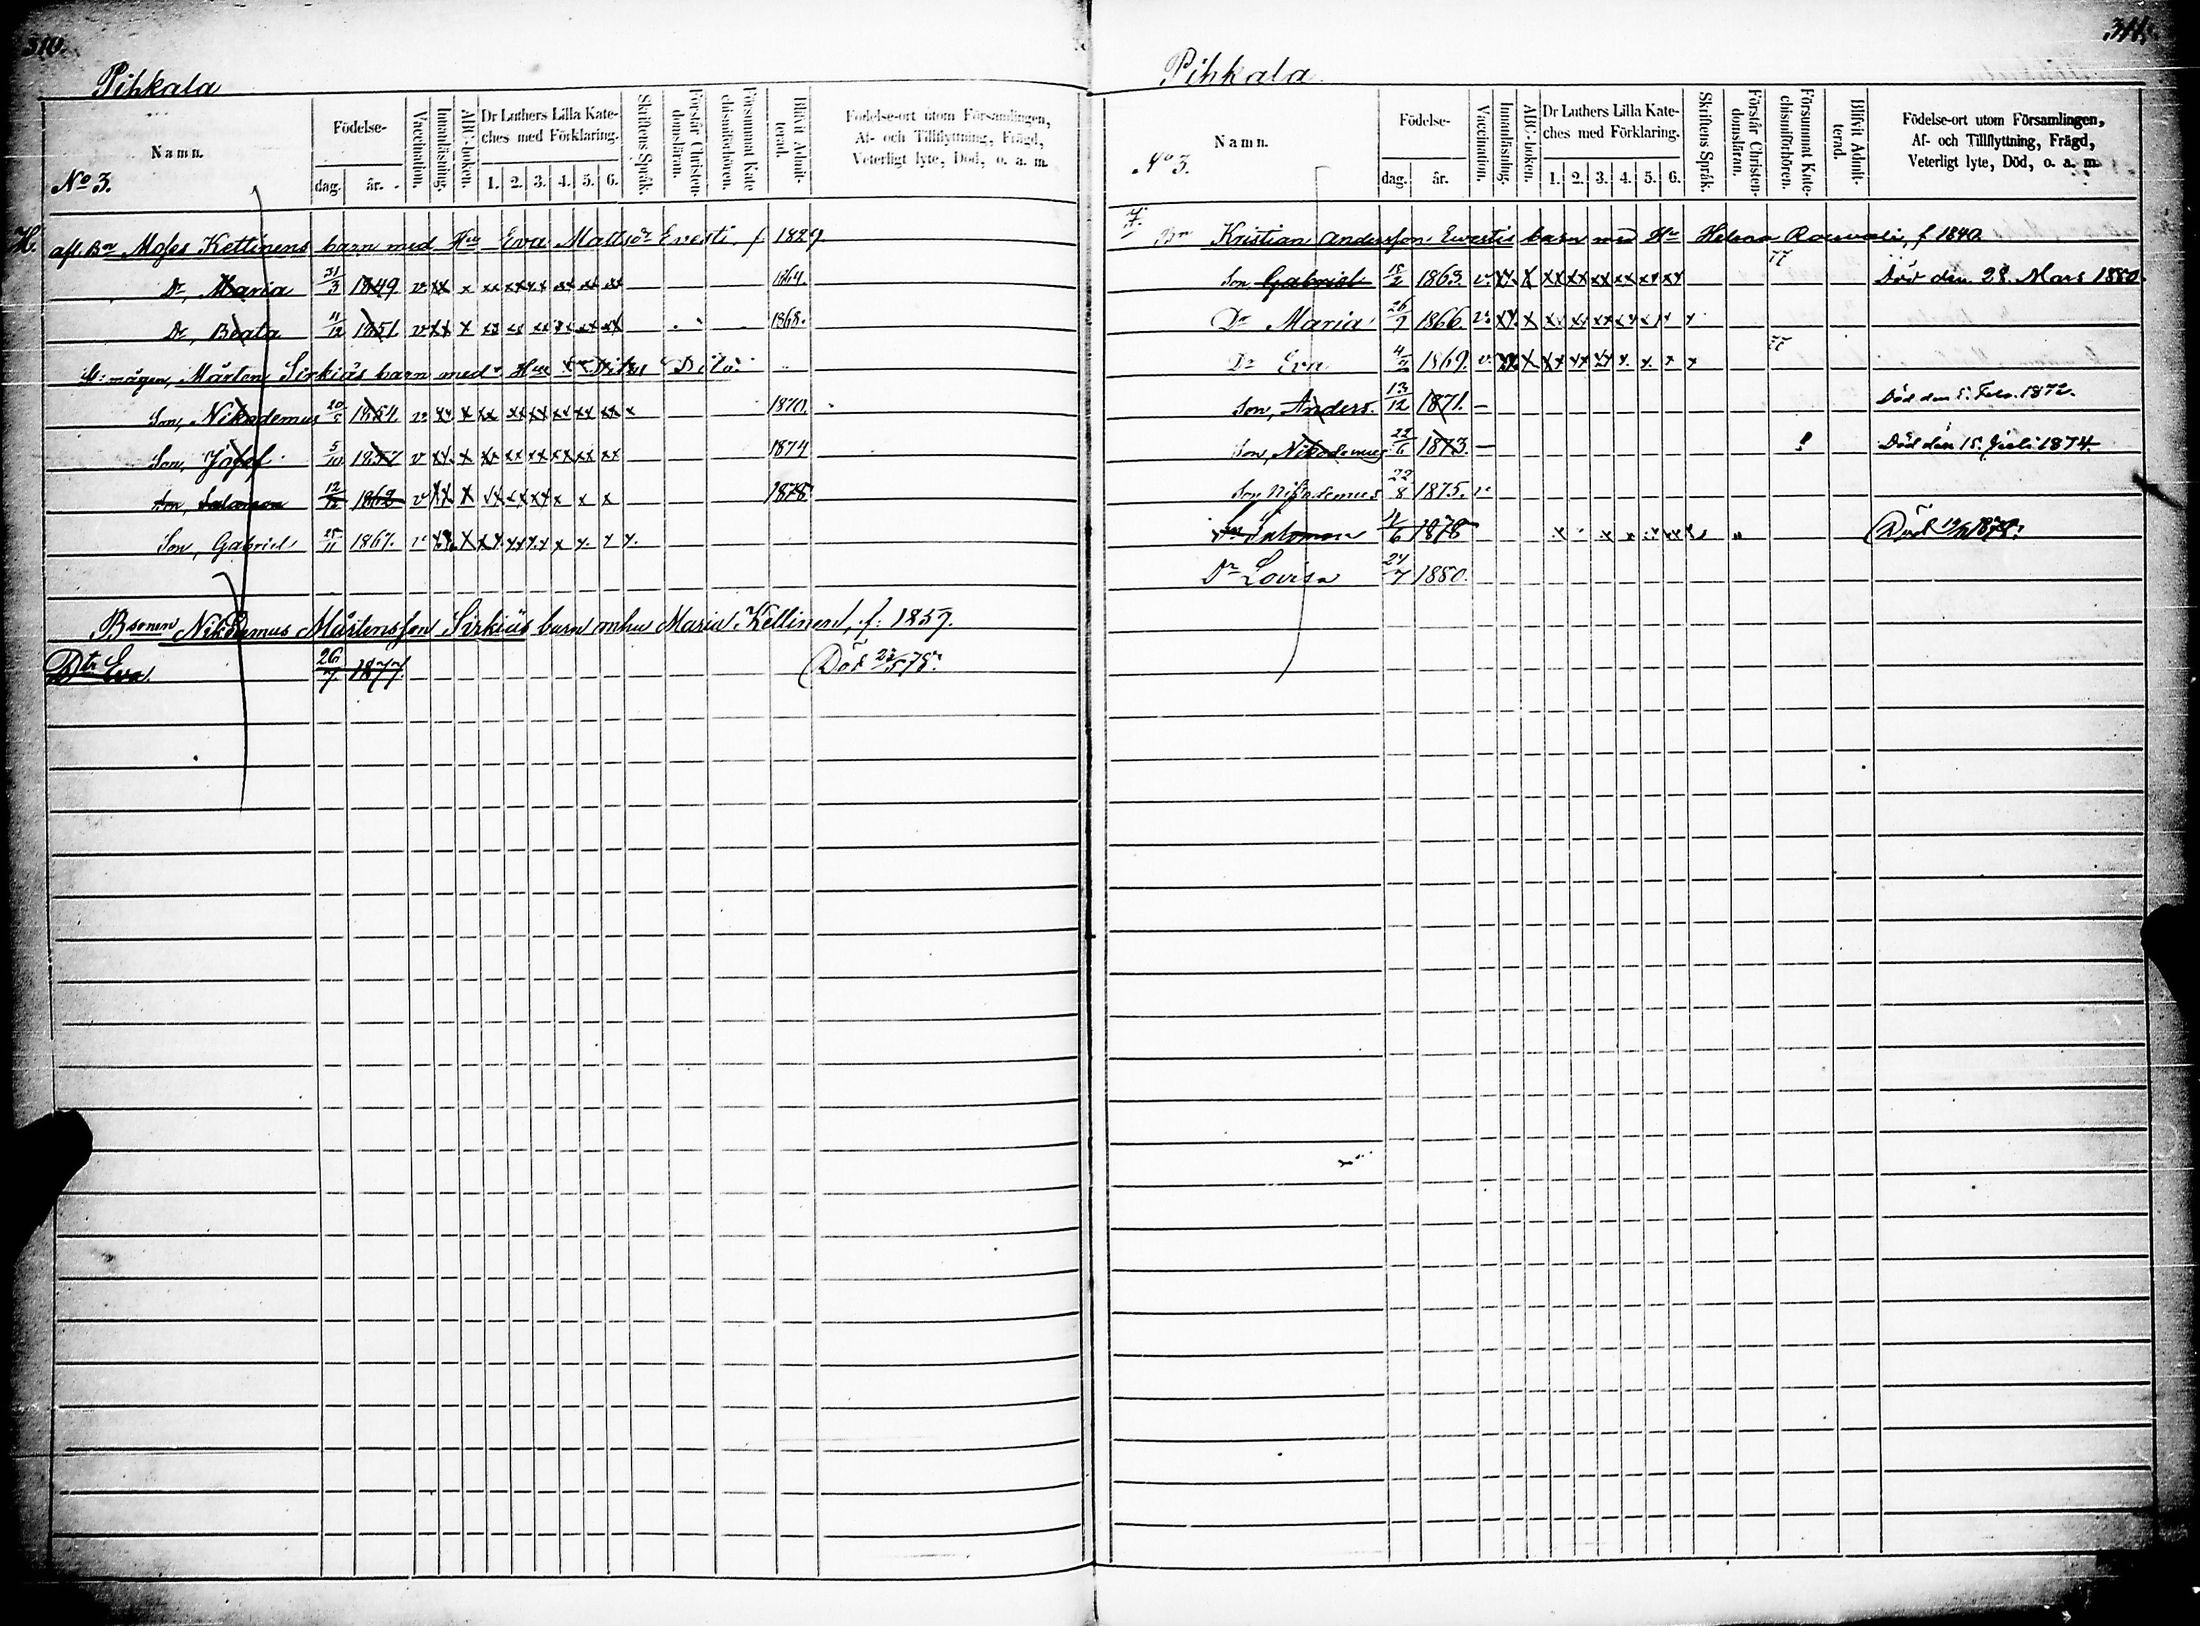 310.
Pihkala
Namn.
No 3.
Födelse-
dag. år.
Vaccination.
Innanläsning.
ABC-boken.
Dr Luthers Lilla Kate-
ches med Förklaring.
1. 2. 3. 4. 5. 6.
Skriftens Språk.
Förstår Christen-
domsläran.
Försummat Kate
chismiförhören.
Blifvit Admit-
terad.
Födelse-ort utom Församlingen,
Af- och Tillflyttning, Frägd,
Veterligt lyte, Död, o. a. m.
afl. Bn Moses Kettinens barn med Hu Eva Mattsdr Evesti f 1829
Dr, Maria 31/3 1849 v xx x xx xx xx xx xx xx 1864.
Dr, Beata 11/12 1851 v xx x xx xx xx xx xx xx 1868.
mågen, Mårten Sirkiäs barn med Hu Dito
Son, Nikodemus 1854 v xx x xx xx xx xx xx xx x 1870.
Son, Josef 5/10 1857 v xx x xx xx xx xx xx xx 1874
Son, Salomon 1862 v xx x xx xx xx x x x 1878
Son, Gabriel 25/11 1867. v xx x xx xx xx x x x x
Bsonen Nikodemus Mårtensson Sirkiäs barn m hu Maria Kettinen, f. 1859.
Dtr Eva. 26/7 1877. Död 78.
311.
Pihkala
Namn.
No 3.
Födelse-
dag. år.
Vaccination.
Innanläsning.
ABC-boken.
Dr Luthers Lilla Kate-
ches med Förklaring.
1. 2. 3. 4. 5. 6.
Skriftens Språk.
Förstår Christen-
domsläran.
Försummat Kate-
chismiförhören.
Blifvit Admit-
terad.
Födelse-ort utom Församlingen,
Af- och Tillflyttning, Frägd,
Veterligt lyte, Död, o. a. m.
Bn Kristian Andersson Ewestis barn med Hu Helena f 1840.
Son, Gabriel 18/2 1863. v. xx. x xx xx xx xx xx xx 77 Död den 28. Mars 1880.
Dr Maria 26/9 1866. v. xx. x xx xx xx xx x x x
Dr Eva 4/2 1869. v. xx. x xx xx xx x. x. x x 77
Son, Anders. 13/12 1871. – Död den 5. Febr. 1872.
Son, Nikodemus 22/6 1873. – Död den 15. Juli 1874.
Son Nikodemus 22/8 1875. v
Son Salomon 11/6 1878 Död 1878.
Dr Lovisa 24/7 1880.